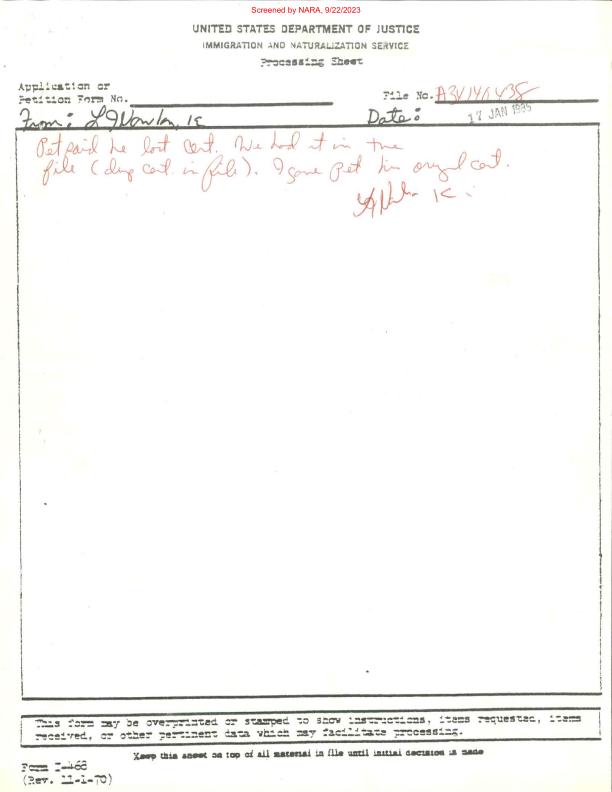 Screened by NARA, 9/22/2023
UNITED STATES DEPARTMENT OF JUSTICE
IMMIGRATION AND NATURALIZATION SERVICE
Processing Sheet
Application or
Petition Form No.
File No.
From:
Date: 17 JAN 1985
Pet said he lost Cert. We had it in the
file (dup cert. in file). I gave Pet his original cert.
This form may be overprinted or stamped to show instructions, items requested, items
received, or other pertinent data which may facilitate processing.
Keep this sheet on top of all material in file until initial decision is made
Form I-468
(Rev. 11-1-70)